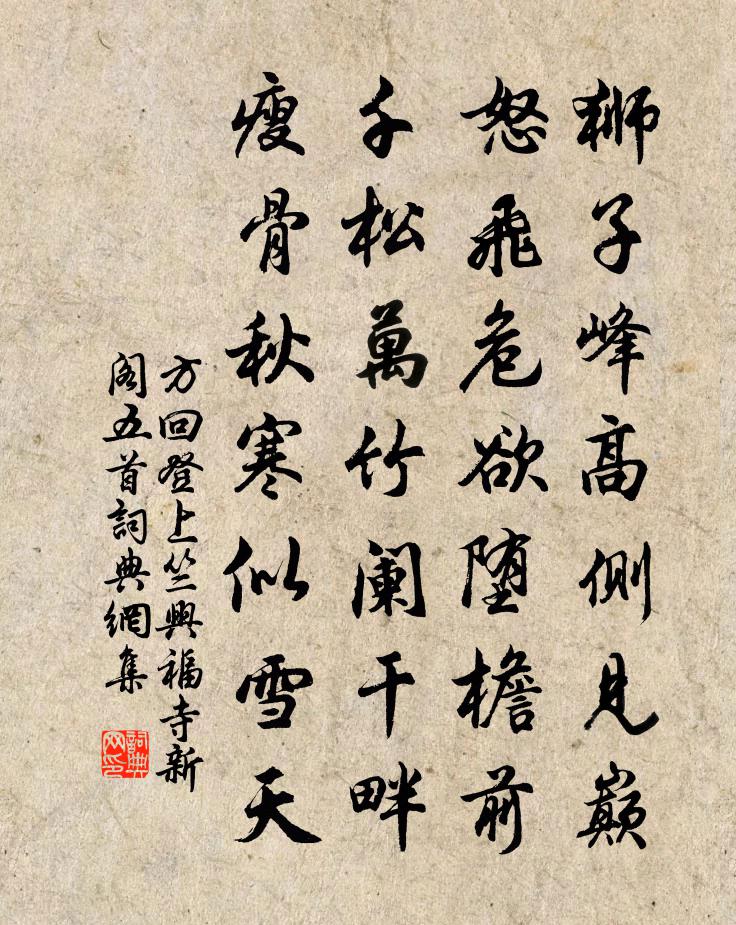 狮子峰高側見巔
怒飛危欲堕檐前
千松萬竹阑干畔
瘦骨秋寒似雪天
方回登上竺興福寺新
阁五首詞典網集
詞典
网印